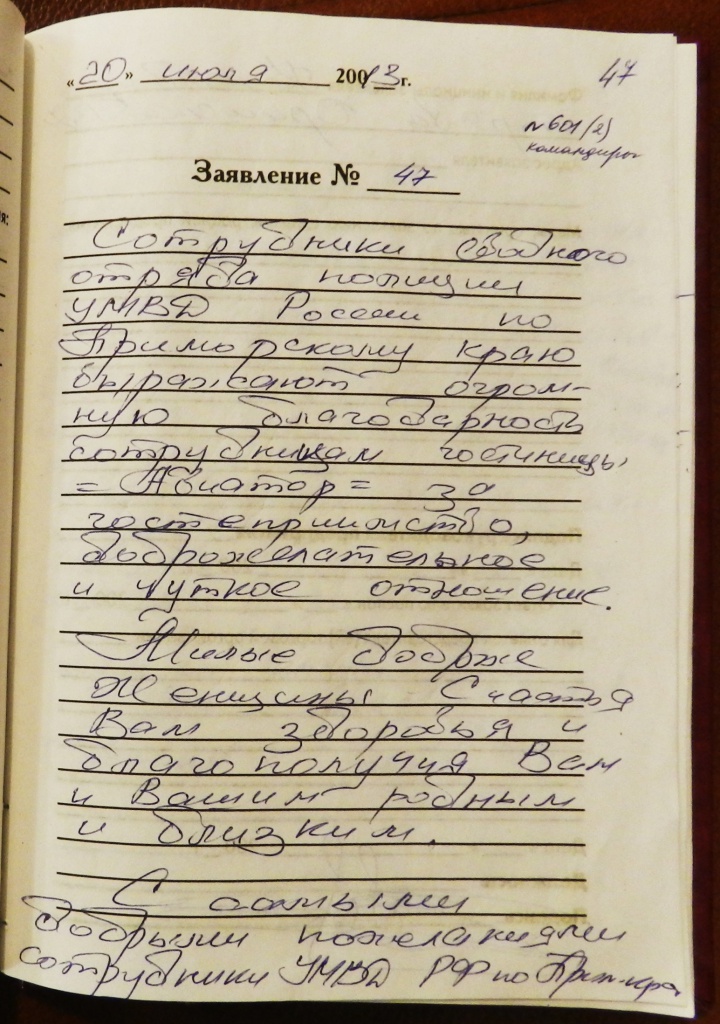 «20» июля 2003г. 47
№601(2)
командиры
Заявление № 47
Сотрудники сводного
отряда полиции
УМВД России по
Приморскому краю
выражают огром-
ную благодарность
сотрудницам гостиницы
= Авиатор = за
гостеприимство,
доброжелательное
и чуткое отношение.
Милые добрые
Женщины Счастья
Вам здоровья и
благополучия Вам
и Вашим родным
и близким.
С самыми
добрыми пожеланиями
сотрудники УМВД РФ по Прим. кра